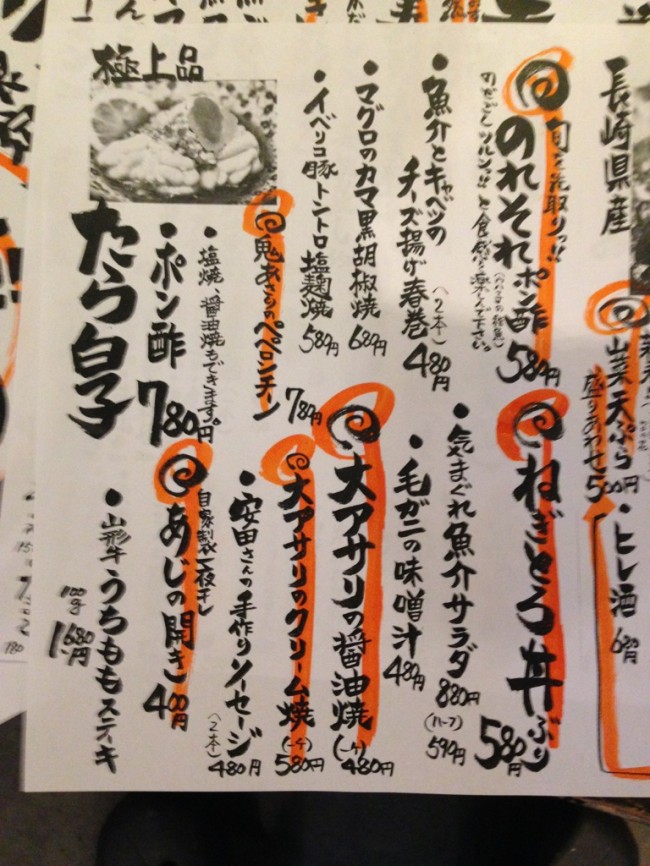 長崎県産
山菜天ぷら
盛りあわせ 500円
・ヒレ酒 680円
旬を先取りっ!!
のれそれポン酢 580円
のどごしツルンッ!!と食感を楽しんで下さい。
ねぎとろ丼ぶり 580円
・魚介とキャベツの
チーズ揚げ春巻(2本) 480円
・気まぐれ魚介サラダ 880円
(ハーフ) 590円
・マグロのカマ黒胡椒焼 680円
・毛ガニの味噌汁 480円
・イベリコ豚トントロ塩麹焼 580円
大アサリの醤油焼(一ケ) 480円
鬼あさりのペペロンチーノ 780円
大アサリのクリーム焼(一ケ) 580円
・安田さんの手作りソーセージ
(2本) 480円
極上品
たら白子
・ポン酢 780円
・塩焼、醤油焼もできます。
自家製一夜干し
あじの開き 400円
・山形牛うちももステーキ
100g 1,680円